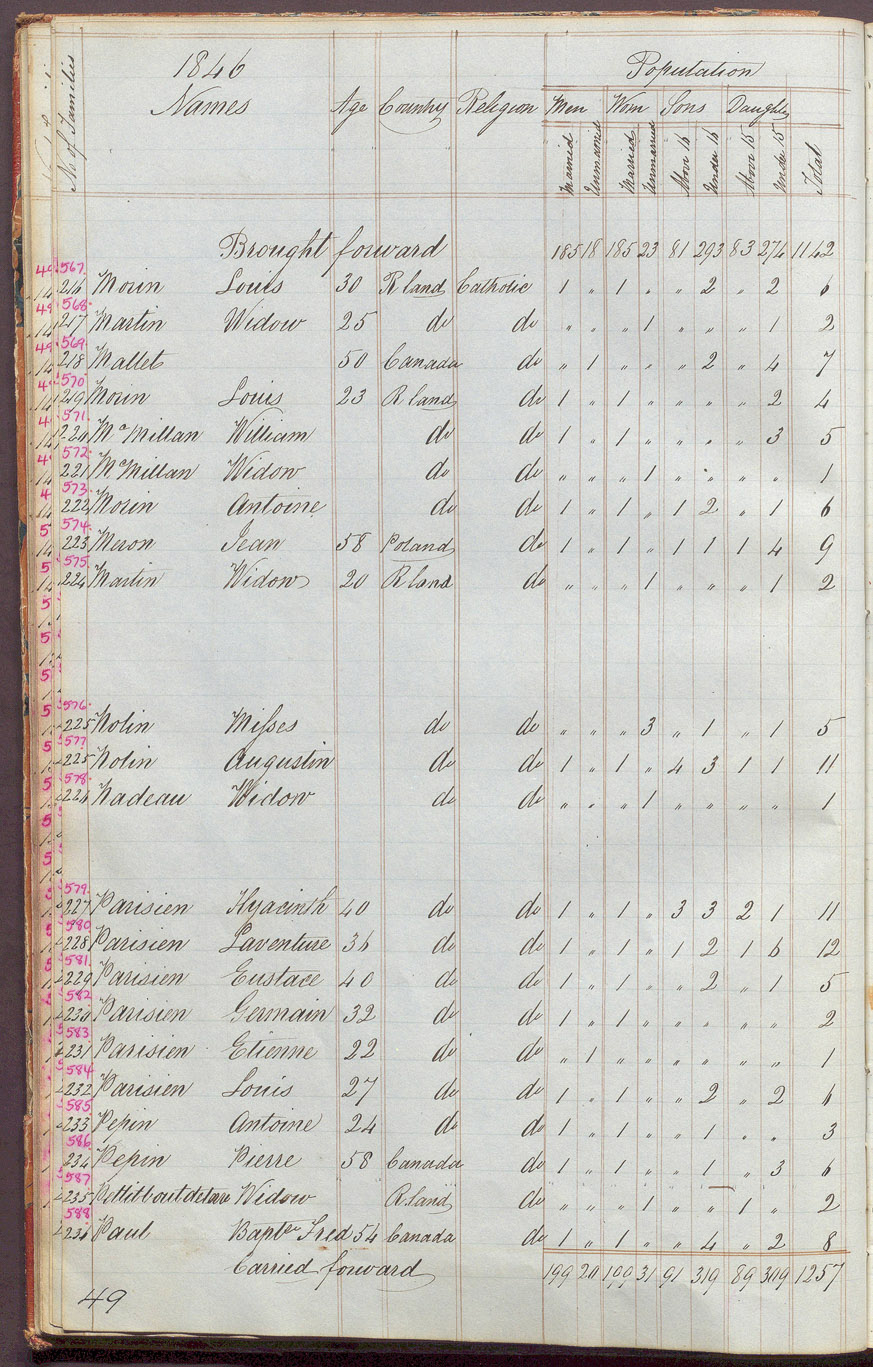 1846
Population
No of Families Names Age Country Religion Men Wom Sons Daught
Married Unmarried Married Unmarried Above 16 Under 16 Above 15 Under 15 Total
Brought forward 185 18 185 23 81 293 83 274 1142
567.
216 Morin Louis 30 R land Catholic 1 " 1 " " 2 " 2 6
568.
217 Martin Widow 25 do do " " " 1 " " " 1 2
569.
218 Mallet 50 Canada do " 1 " " " 2 " 4 7
570
219 Morin Louis 23 R land do 1 " 1 " " " " 2 4
571.
220 McMillan William do do 1 " 1 " " " " 3 5
572.
221 McMillan Widow do do " " " 1 " " " " 1
573.
222 Morin Antoine do do 1 " 1 " 1 2 " 1 6
574.
223 Meron Jean 58 Poland do 1 " 1 " 1 1 1 4 9
575.
224 Martin Widow 20 R land do " " " 1 " " " 1 2
576.
225 Nolin Misses do do " " " 3 " 1 " 1 5
577.
225 Nolin Augustin do do 1 " 1 " 4 3 1 1 11
578.
226 Nadeau Widow do do " " " 1 " " " " 1
579.
227 Parisien Hyacinth 40 do do 1 " 1 " 3 3 2 1 11
580
228 Parisien Laventure 36 do do 1 " 1 " 1 2 1 6 12
581.
229 Parisien Eustace 40 do do 1 " 1 " " 2 " 1 5
582
230 Parisien Germain 32 do do 1 " 1 " " " " " 2
583
231 Parisien Etienne 22 do do " 1 " " " " " " 1
584
232 Parisien Louis 27 do do 1 " 1 " " 2 " 2 6
585
233 Pepin Antoine 24 do do 1 " 1 " " 1 " " 3
586
234 Pepin Pierre 58 Canada do 1 " 1 " " 1 " 3 6
587
235 Widow R land do " " " 1 " " 1 " 2
588
236 Paul Bapte Fred 54 Canada do 1 " 1 " " 4 " 2 8
Carried forward 199 20 199 31 91 319 89 309 1257
49